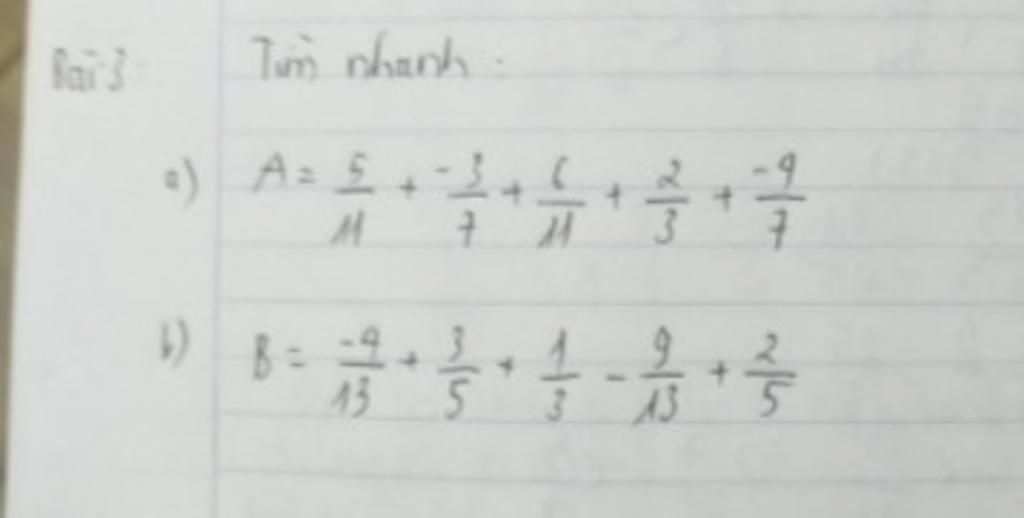 Bài 3: Tìm nhanh.
a) A = 5/11 + -3/7 + 6/11 + 2/3 + -4/7
b) B = -4/13 + 3/5 + 1/3 - 9/13 + 2/5